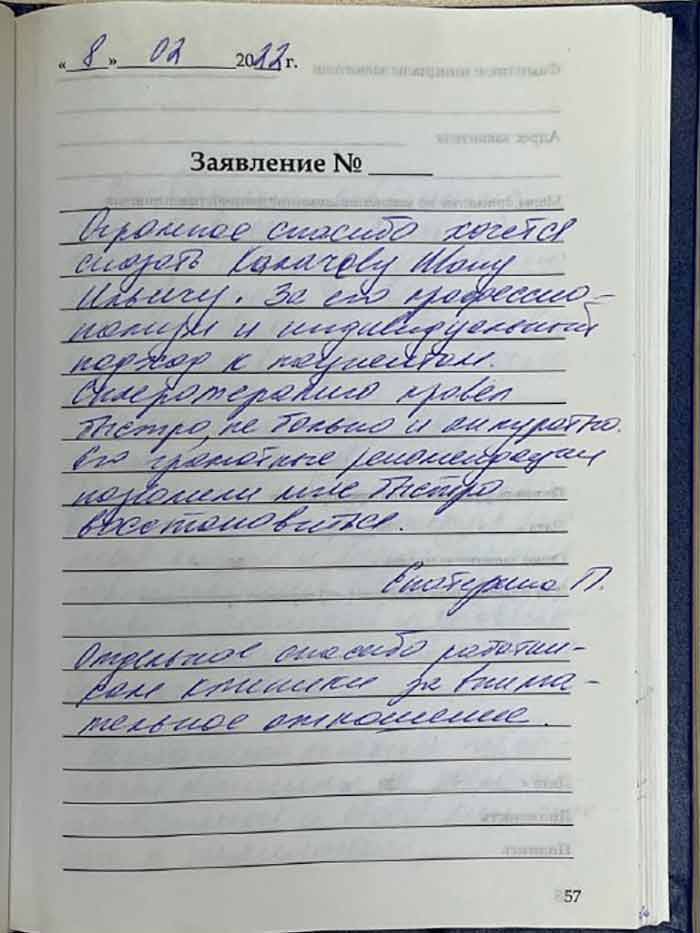 « 8 » 02 2022 г.
Заявление № ____
Огромное спасибо хочется
сказать Калачеву Ивану
Ильичу. За его профессио-
нализм и индивидуальный
подход к пациентам.
Склеротерапию провел
быстро, не больно и аккуратно.
Его грамотные рекомендации
позволили мне быстро
восстановиться.
Екатерина П.
Отдельное спасибо работни-
кам клиники за внима-
тельное отношение.
57